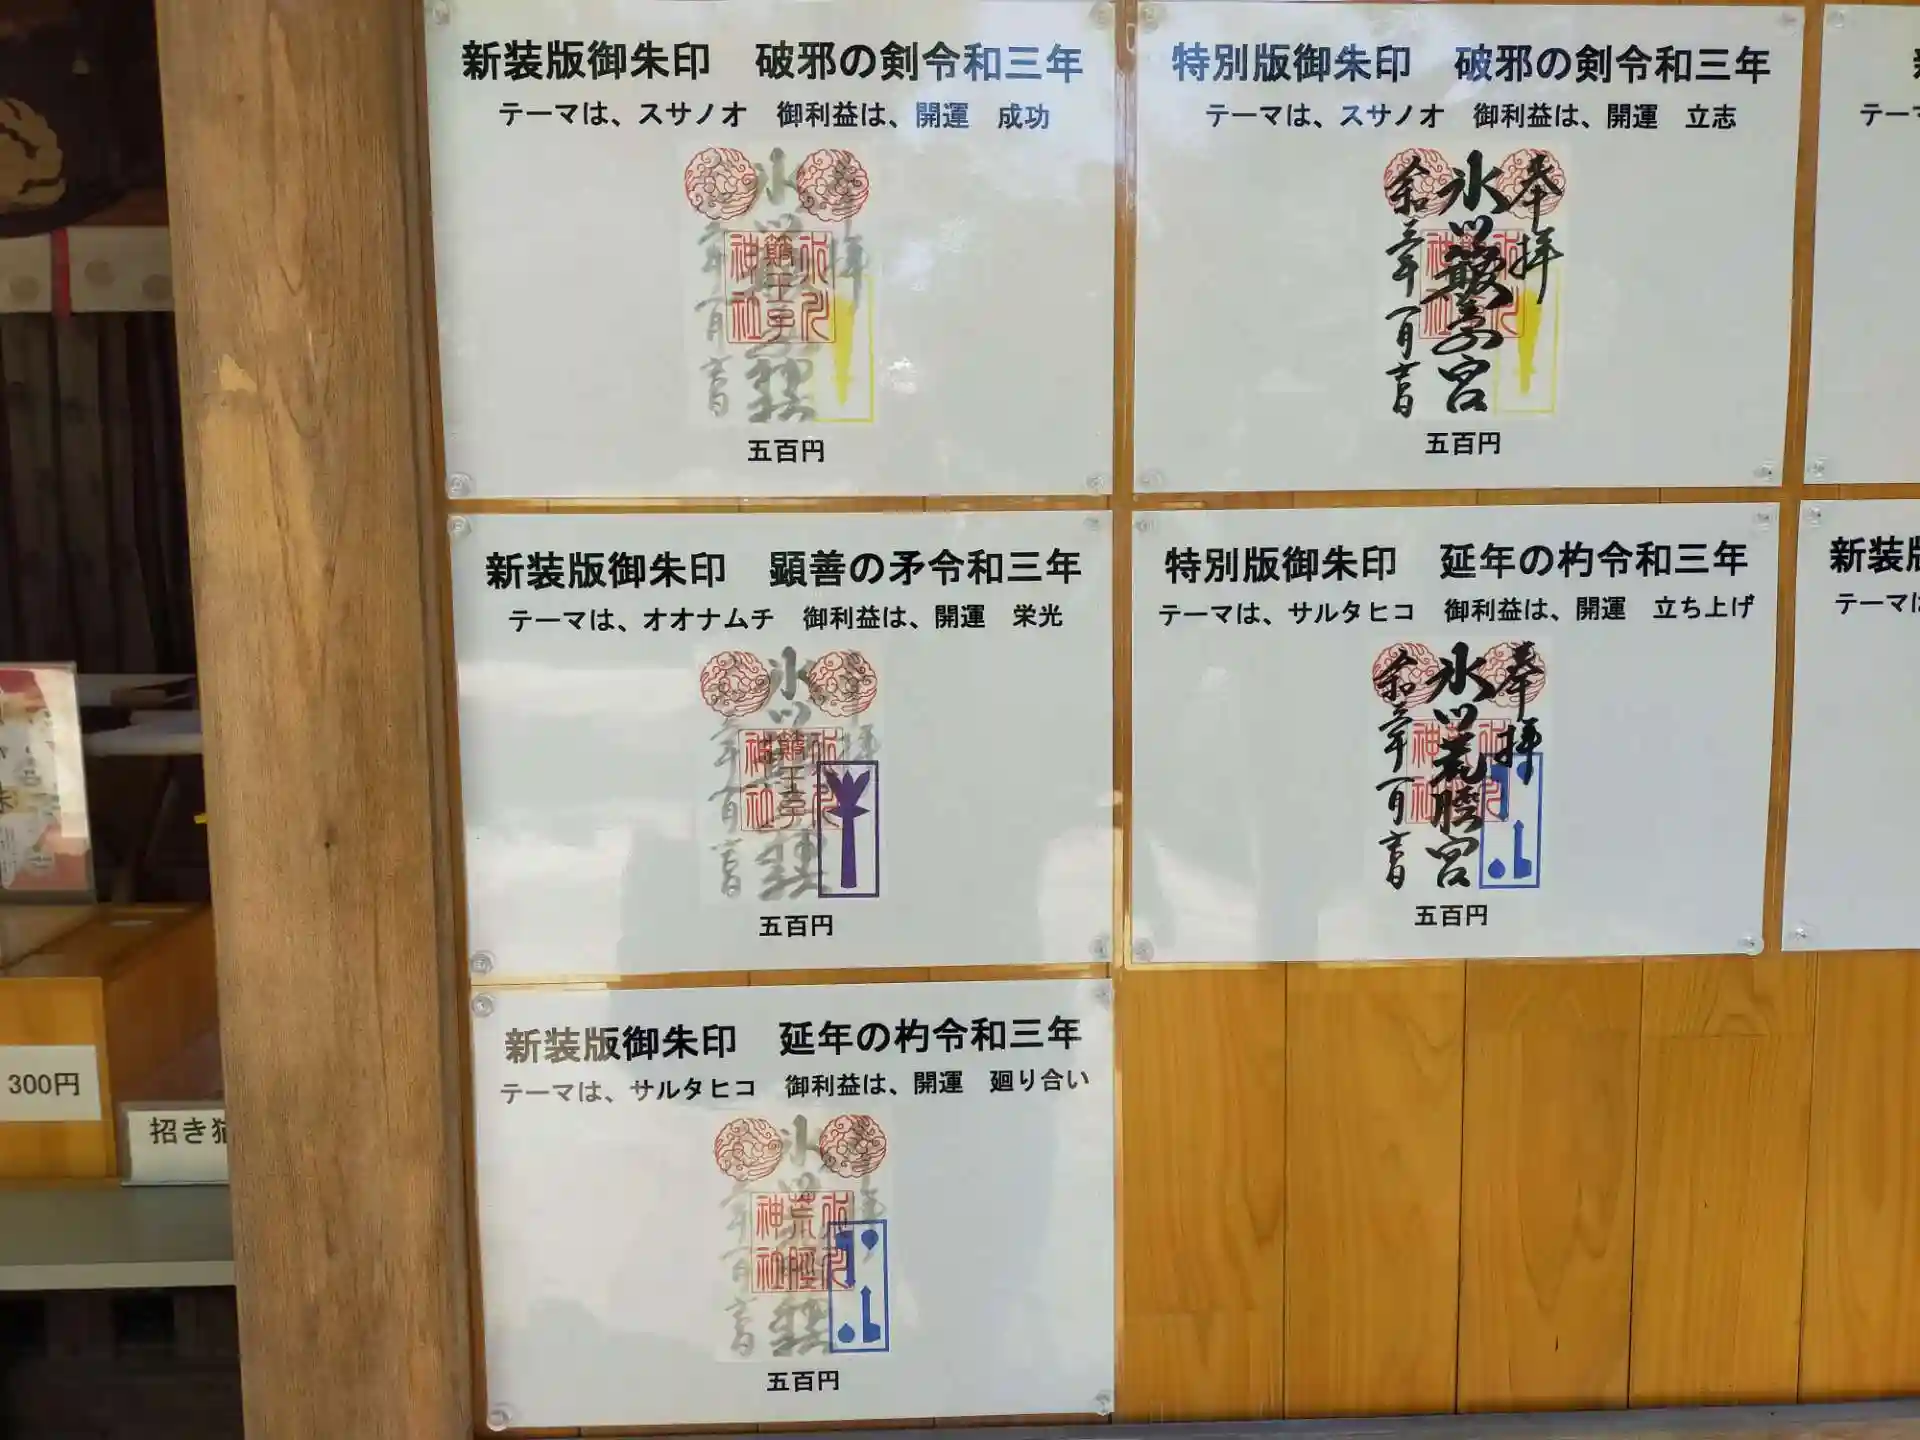 新装版御朱印　破邪の剣令和三年
テーマは、スサノオ　御利益は、開運　成功
五百円
特別版御朱印　破邪の剣令和三年
テーマは、スサノオ　御利益は、開運　立志
奉拝
五百円
テーマ
新装版御朱印　顕善の矛令和三年
テーマは、オオナムチ　御利益は、開運　栄光
五百円
特別版御朱印　延年の杓令和三年
テーマは、サルタヒコ　御利益は、開運　立ち上げ
奉拝
氷川荒脛宮
五百円
新装版
テーマは
新装版御朱印　延年の杓令和三年
テーマは、サルタヒコ　御利益は、開運　廻り合い
氷川
荒脛
神社
五百円
300円
招き猫